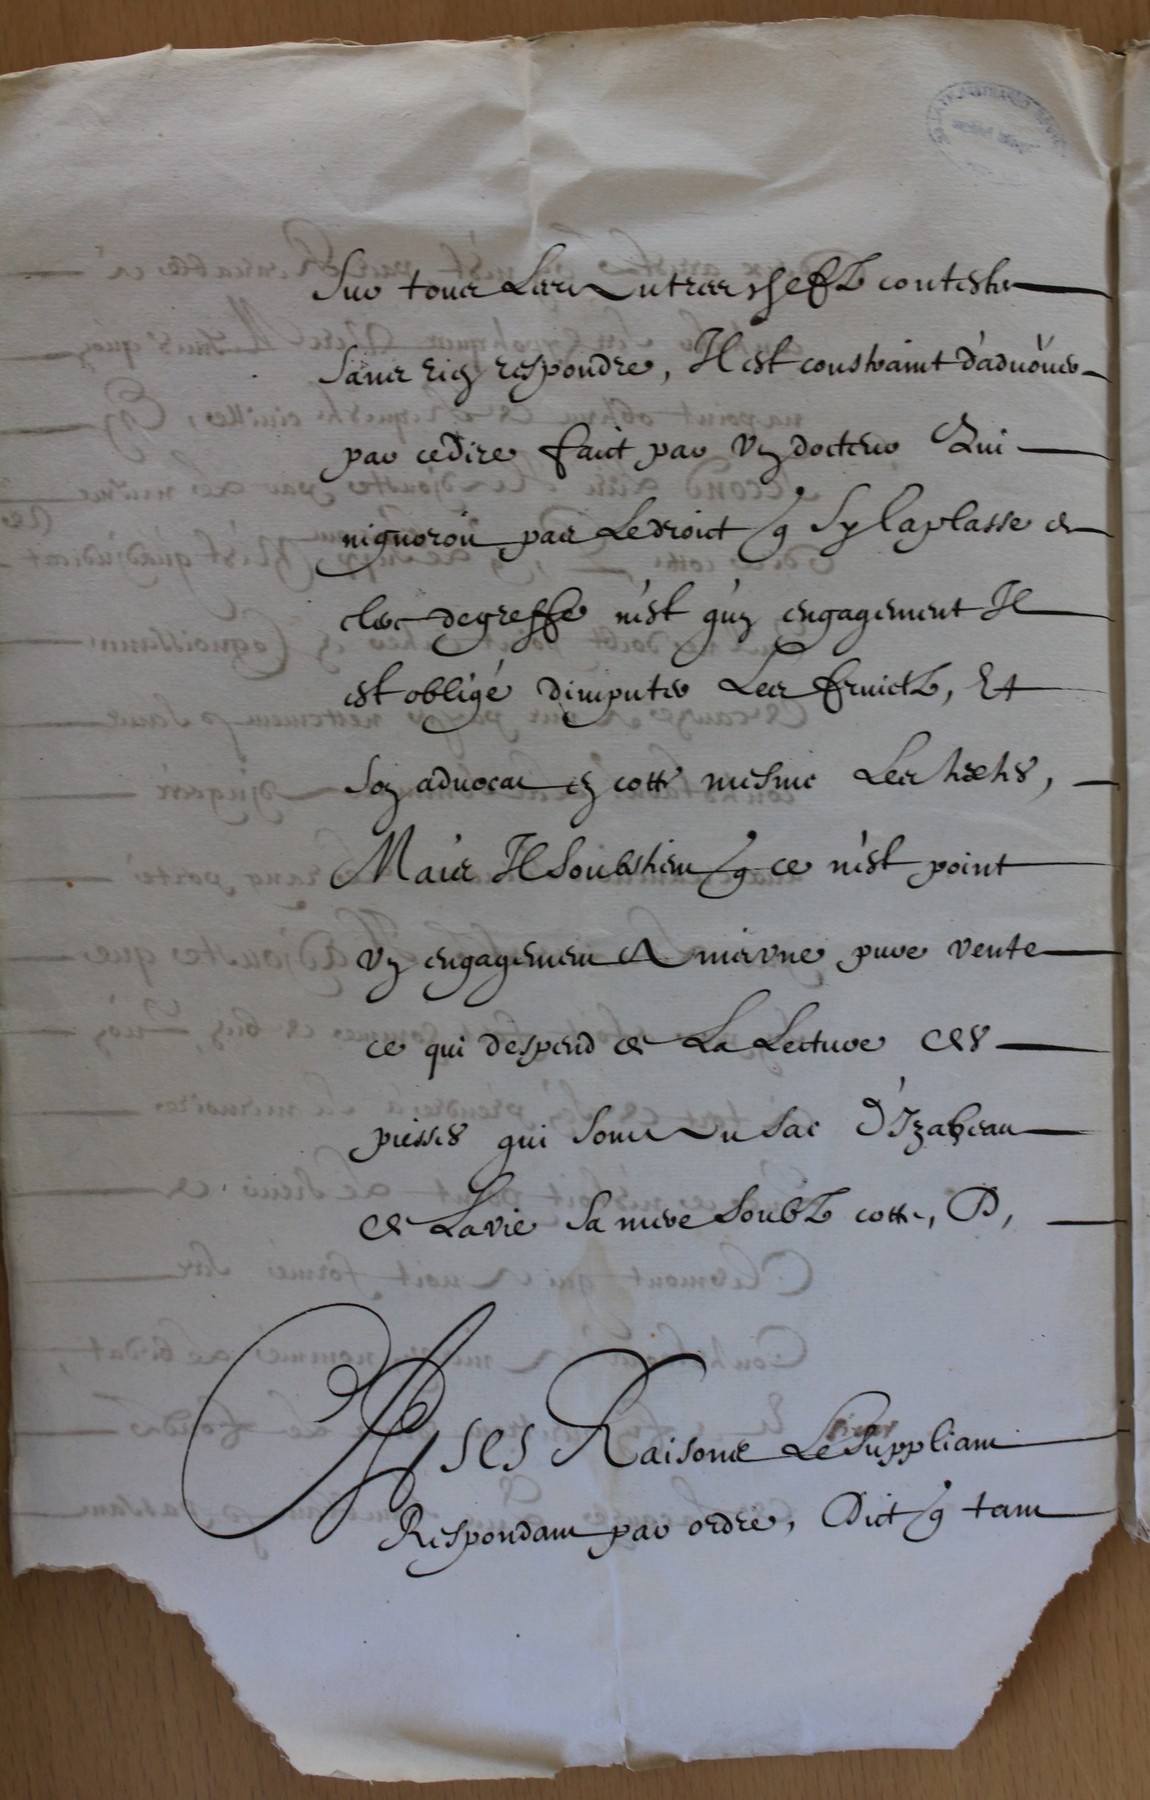 Sur tous Les Autres chefz contestes
Sans rien respondre, Il est constraint d'aduöuer
par ce dire faict par vn docteur Qui
nignoroit pas Le droict q Sy la plasse de
clerc de greffe n'est qu'un engagement Il
est obligé dimputer Les fruictz, Et
Son aduocat en cotte mesme Les
Mais Il Soubstient q ce n'est point
vn engagement Ains vne pure vente
ce qui despend de La Lecture des
piesses qui sont Au sac D'Izabeau
de Lavie sa mere soubz cotte, D,
A ses Raisons Le Suppliant
Respondant par ordre, Dict q tant